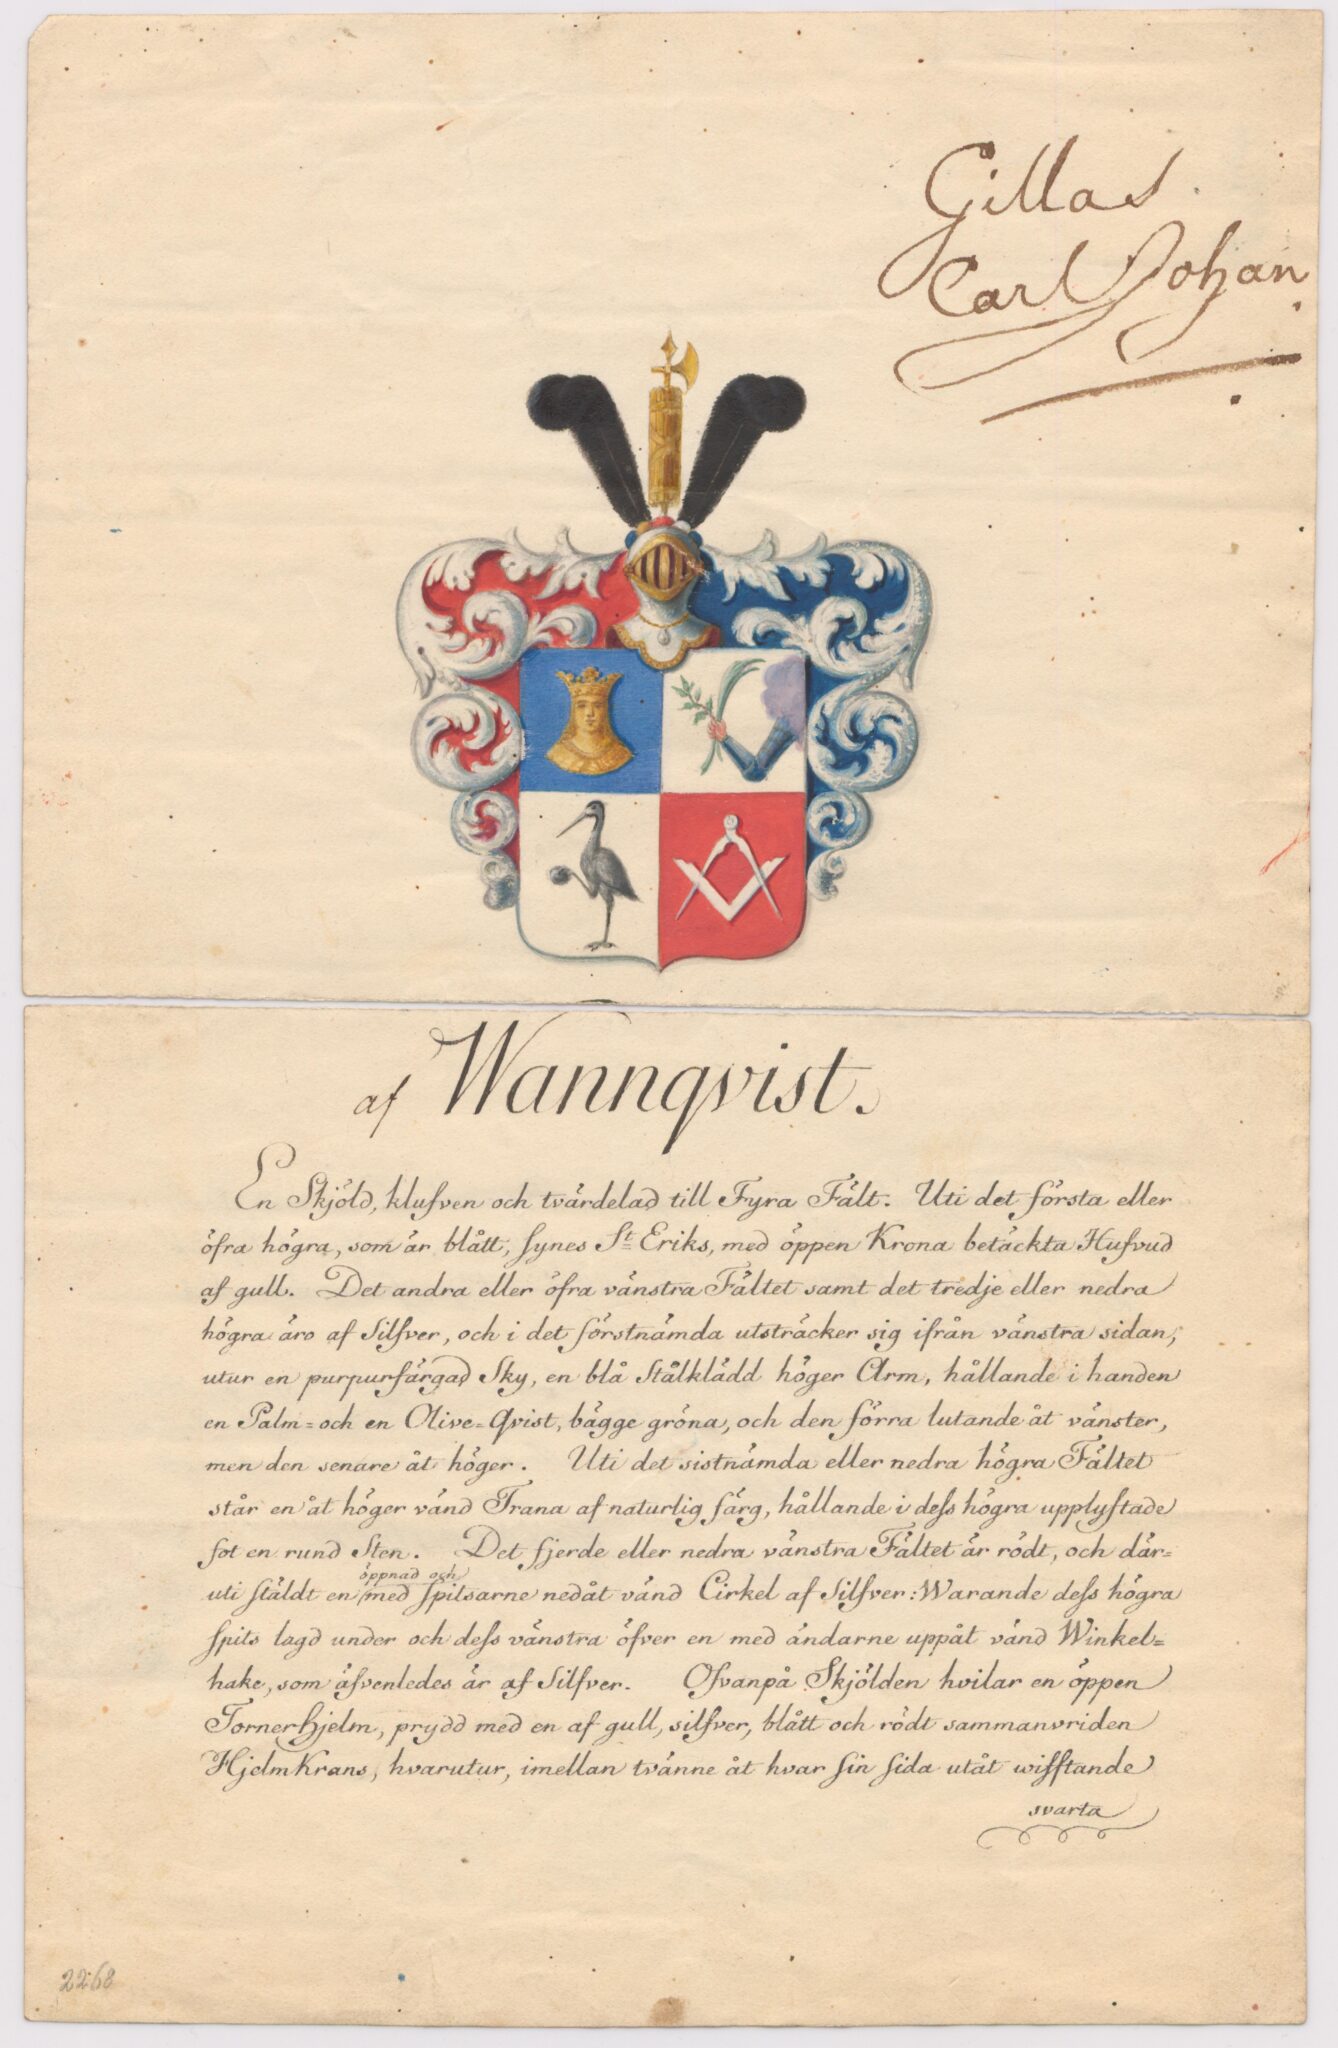 Gillas.
Carl Johan
af Wannqvist.
En Skjöld, klufven och tvärdelad till Fyra Fält. Uti det första eller
öfra högra, som är blått, synes St Eriks, med öppen Krona betäckta Hufvud
af gull. Det andra eller öfra vänstra Fältet samt det tredje eller nedra
högra äro af Silfver, och i det förstnämda utsträcker sig ifrån vänstra sidan,
utur en purpurfärgad Sky, en blå Stålklädd höger Arm, hållande i handen
en Palm= och en Olive=Qvist, bägge gröna, och den förra lutande åt vänster,
men den senare åt höger. Uti det sistnämda eller nedra högra Fältet
står en åt höger vänd Trana af naturlig färg, hållande i dess högra upplyftade
fot en rund Sten. Det fjerde eller nedra vänstra Fältet är rödt, och där=
öppnad och
uti stäldt en med spitsarne nedåt vänd Cirkel af Silfver: Warande dess högra
spits lagd under och dess vänstra öfver en med ändarne uppåt vänd Winkel=
hake, som äfvenledes är af Silfver. Ofvanpå Skjölden hvilar en öppen
Tornerhjelm, prydd med en af gull, silfver, blått och rödt sammanvriden
HjelmKrans, hvarutur, imellan tvänne åt hvar sin sida utåt wifftande
svarta
2268